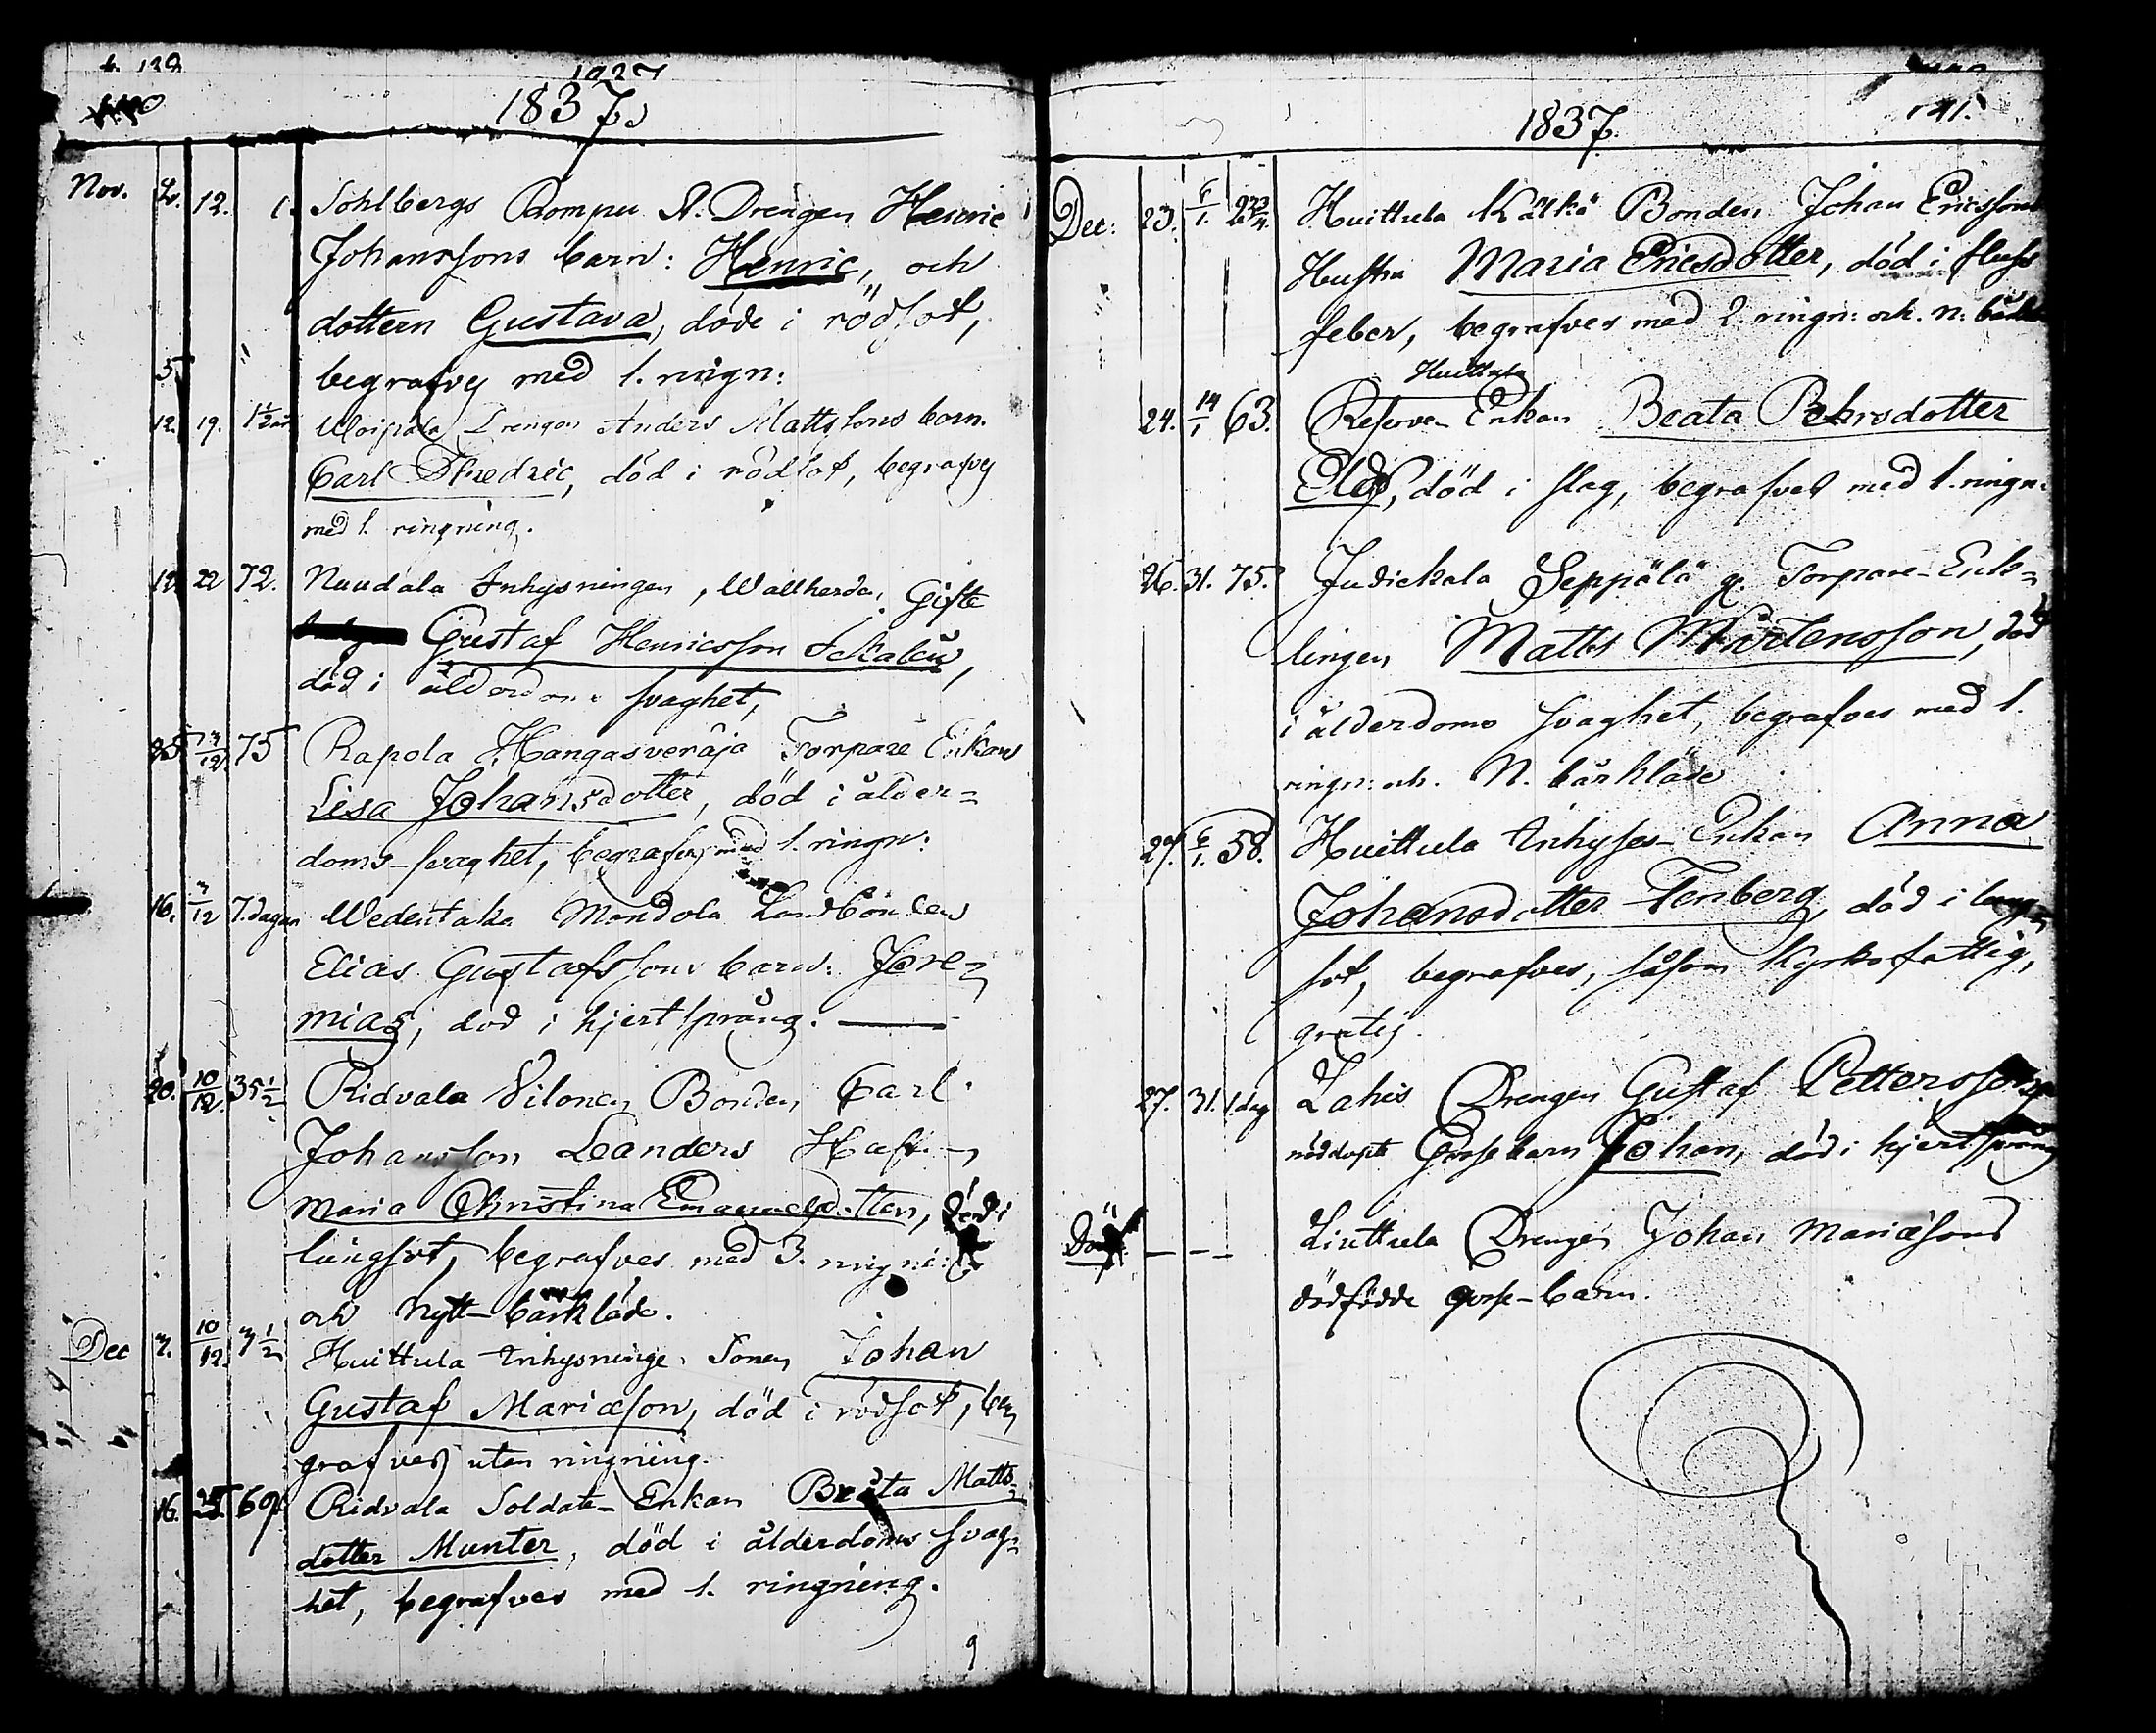 139
1837
1837.
Nov. 12. 1. Sohlbergs Pompu St. Drengen Henric
Johanssons barn: Henric, och
dottern Gustava, döde i rödsot,
5 begrafvs med 1. ringn:
12. 19. 1½ Moipala Drengen Anders Mattssons barn.
Carl Fredric, död i rödsot, begrafvs
med 1. ringning.
12 22 72. Nuudala Inhysningen, Wallherde, Gifte
Gustaf Henricsson,
död i ålderdoms svaghet,
3/12 75 Rapola Hangasveräjä Torpare Enkan
Lisa Johansdotter, död i ålder=
doms-svaghet, begrafvs med 1. ringn:
16. 3/12 7. dagar Wedentaka Mondola Landbonden
Elias Gustafssons barn: Jere=
mias, död i hjertsprång.
20. 10/12. 35½ Ridvala Vilonen Bonden Carl
Johansson Leanders
Maria Christina Emanuelsdotter, död i
lungsot, begrafves med 3. ringn:
och Nytt-bårkläde.
Dec 7. 10/12. 3½ Huittula Inhysninge Sonen Johan
Gustaf Mariæson, död i rödsot, be=
grafves utan ringning.
16. 69. Ridvala Soldate-Enkan Beata Matts=
dotter Munter, död i ålderdoms svag=
het, begrafves med 1. ringning.
9
141.
1837.
Dec: 23. 6/1. Huittula Kälkä Bonden Johan Ericssons
Hustru Maria Ericsdotter, död i fluss
feber, begrafves med 2. ringn: och. n: bårkl
Huittula
24. 14/1 63. Reserve-Enkan Beata Pehrsdotter
Elg, död i slag, begrafves med 1. ringn:
26. 31. 75. Judickala Seppälä Torpare-Enk=
lingen Matts Mårtensson, död
i ålderdoms svaghet, begrafves med 1.
ringn: och. N. bårkläde
27. 6/1. 58. Huittula Inhyses-Enkan Anna
Johansdotter Tenberg, död i lung=
sot, begrafves, såsom Kyrkofattig,
gratis.
27. 31. 1. dag Lahis Drengen Gustaf Petterssons
nöddöpte Gossebarn Johan, död i hjertsprång
Liuttula Drengen Johan Mariæsons
dödfödde gosse-barn.